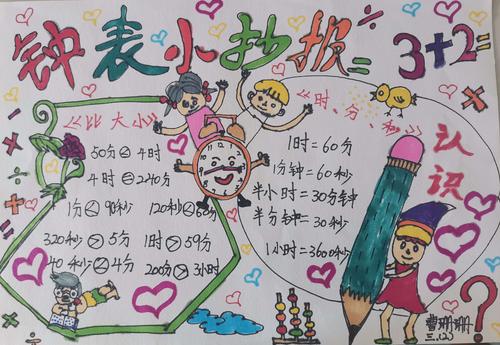 钟表小抄报
3+2=
《比大小》
50分<4时
4时=240分
1分<90秒 120秒<60分
320秒>5分 1时>59分
40秒>4分 200分>3时
《时、分、秒》
认识
1时=60分
1分钟=60秒
半小时=30分钟
半分钟=30秒
1小时=3600秒
?
曹珊珊
三.(2)